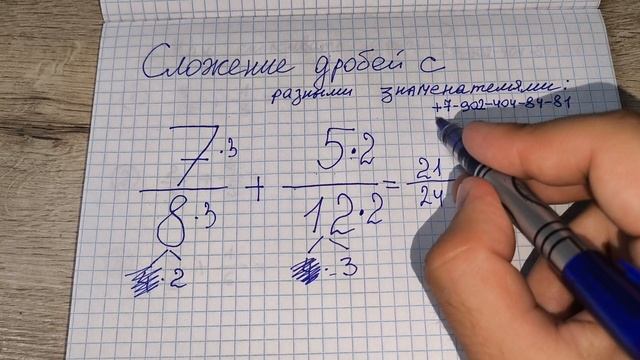 Сложение дробей с
разными знаменателями:
+7-902-404-84-81
7·3 5·2 21
8·3 + 12·2 = 24
·2 ·3